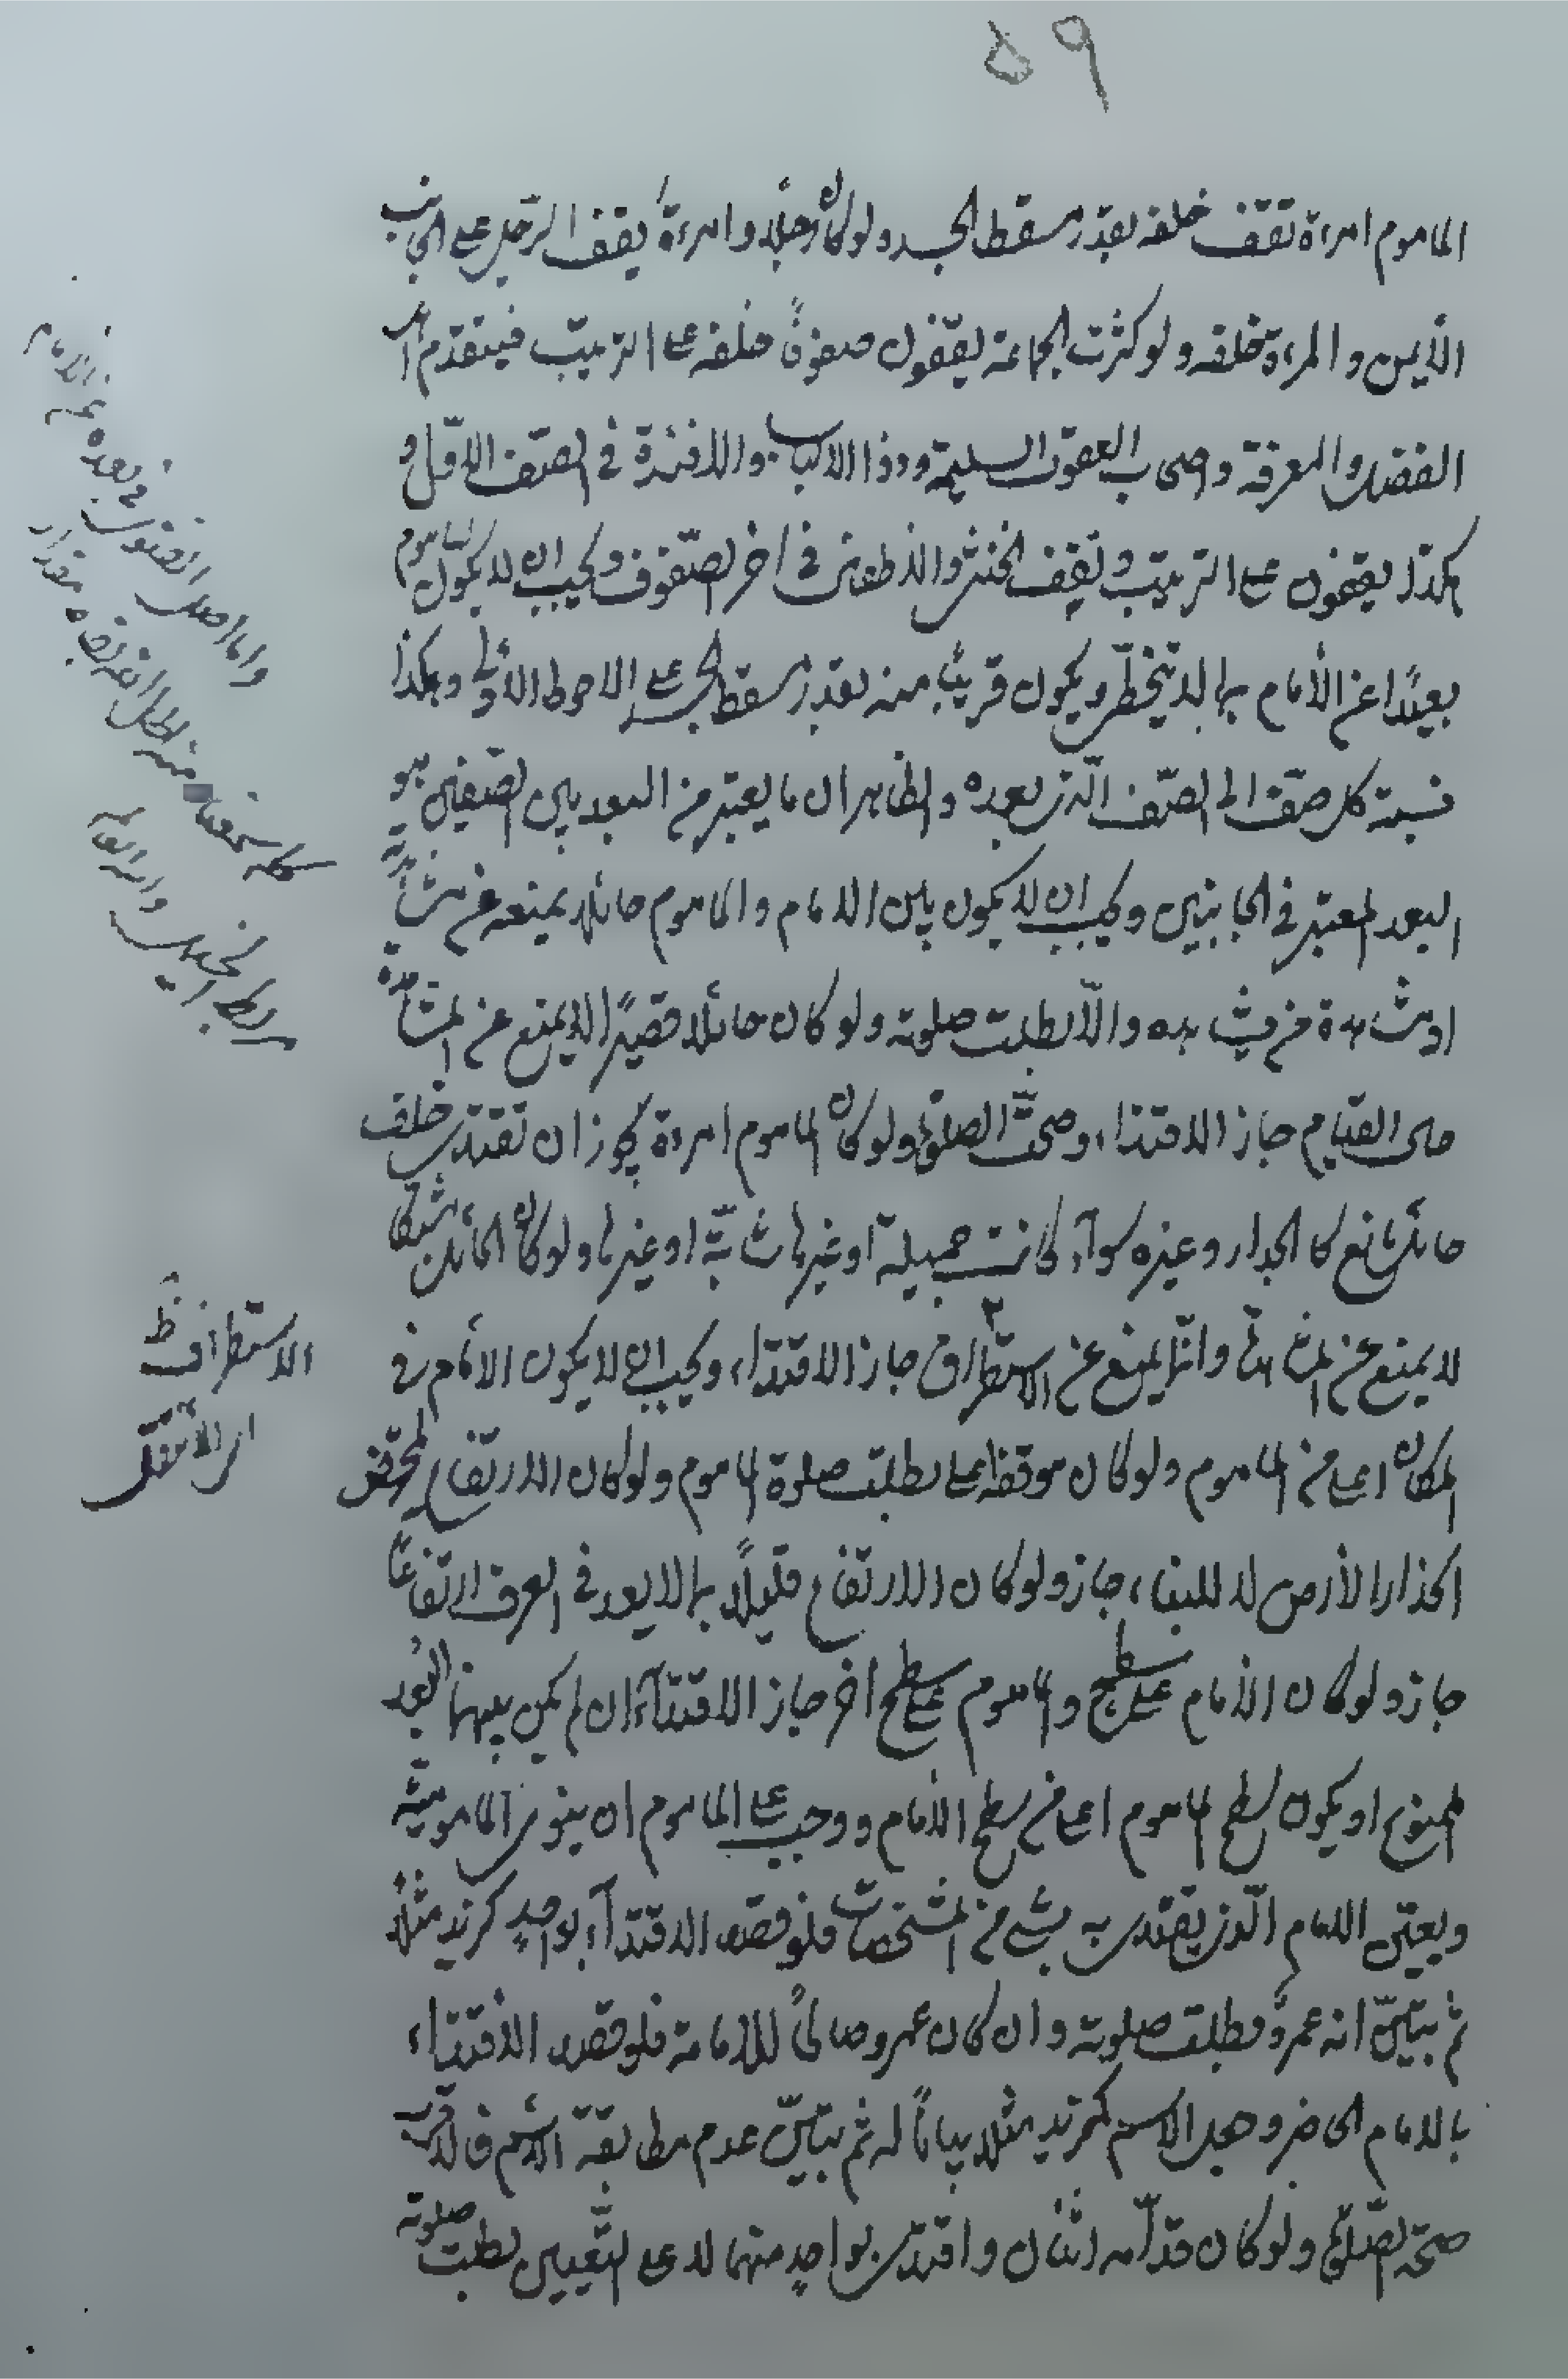 ٥٩
الماموم امرءة تقف خلفه بقدر مسقط الجسد ولو كان رجلا وامرءة يقف الرجل على الجانب
الأيمن والمرءة خلفه ولو كثرت الجماعة يقفون صفوفاً خلفه على الترتيب فيتقدم
الفضل والمعرفة واصحاب العقول السليمة وذوا الالباب والافئدة في الصّف الاوّل و
هكذا يقفون على الترتيب و تقف الخنثى والأطفال في اخر الصّفوف ويجب ان لا يكون الماموم
بعيدًا عن الأمام بما لا يتخطّى ويكون قريباً منه بقدر مسقط الجسد على الاحوط الأولى وهكذا
نسبة كل صفّ الى الصّف الّذى بعده والظاهر ان ما يعتبر من البعد بين الصّفين هو
البعد المعتبر في الجانبين ويجب ان لا يكون بين الامام والماموم حائلا يمنعه عن مشاهدته
او مشاهدة من يشاهده والّا بطلت صلوته ولو كان حائلا قصيرًا لا يمنع عن المشاهدة
حال القيام جاز الاقتداء وصحّت الصلوة ولو كان الماموم امرءة يجوز ان تقتدى خلف
حائل مانع كالجدار وغيره سوآء كانت جميلة او غيرها شابّة او غيرها ولو كان الحائل شباكا
لا يمنع عن المشاهدة وانّما يمنع عن الاستطراق جاز الاقتداء ويجب ان لا يكون الأمام في
المكان اعلى من الماموم ولو كان موقفه اعلى بطلت صلوة الماموم ولو كان الارتفاع لمحض
انحدار الأرض لا للبناء جاز ولو كان الارتفاع قليلاً بما لا يعد في العرف ارتفاعًا
جاز ولو كان الأمام على سطح والماموم على سطح اخر جاز الاقتدآء ان لم يكن بينهما البعد
الممنوع او يكون سطح الماموم اعلى من سطح الأمام ووجب على الماموم ان ينوى المامومية
ويعيّن الامام الّذى يقتدى به بشئ من المشخّصات فلو قصد الاقتدآء بواحدٍ كزيد مثلاً
ثم تبيّن انه عمرو بطلت صلوته وان كان عمرو صالحاً للأمامة فلو قصد الاقتداء
بالامام الحاضر وجعل الاسم كزيد مثلا بياناً له ثم تبيّن عدم مطابقة الأسم فالاقرب
صحّة الصّلوة ولو كان قدّامه اثنان واقتدى بواحدٍ منهما لا على التّعيين بطلت صلوته
واما اصل الصفوف في بعده عن الامام
الاستطراق ظ
اى الأنتقال